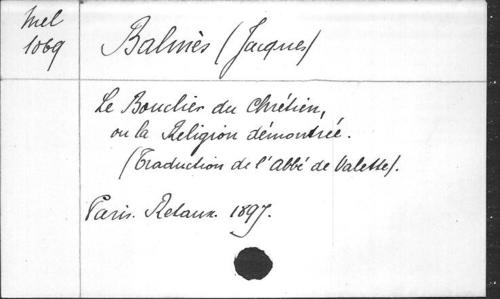 Mel
1069
Balmès (Jacques)
Le Bouclier du Chrétien,
ou la Religion démontrée.
(Traduction de l'Abbé de Valette).
Paris. Retaux. 1897.